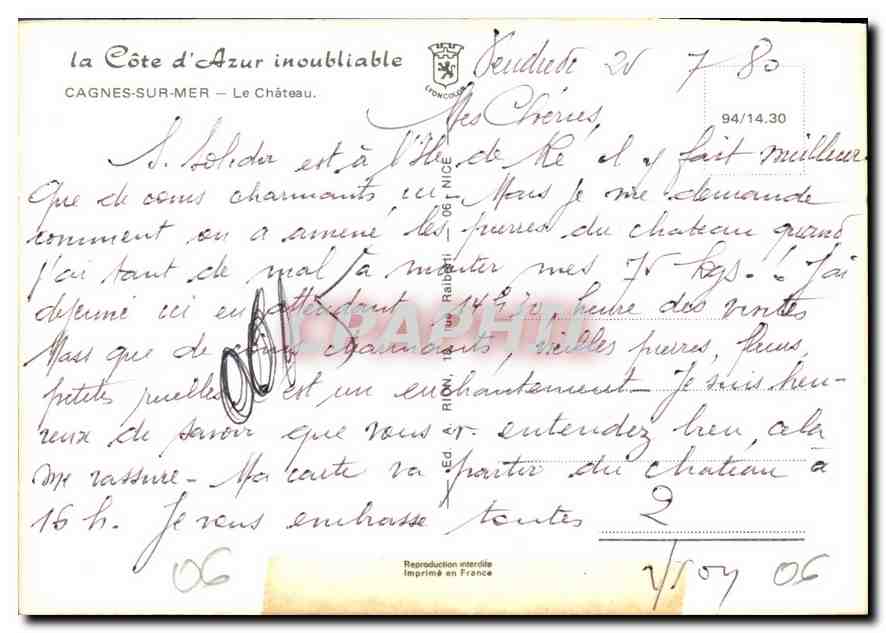 la Côte d'Azur inoubliable
CAGNES-SUR-MER — Le Château.
LYONCOLOR
Vendredi 25 7 80
94/14.30
Mes Chéries,
S. est à l'Ile de Ré il y fait meilleur.
Que de coins charmants ici - Mais je me demande
comment on a amené les pierres du chateau quand
j'ai tant de mal à monter mes 75 kgs !! J'ai
dejeuné ici en attendant 14h30, heure des visites
Mais que de coins charmants, vieilles pierres, fleurs,
petites ruelles est un enchantement - Je suis heu-
reux de savoir que vous vs. entendez bien, cela
me rassure - Ma carte va partir du chateau à
16 h. Je vous embrasse toutes 2
Ed. RION, rue Raiberti - 06 - NICE
CRAPHTI
Reproduction interdite
Imprimé en France
06
06